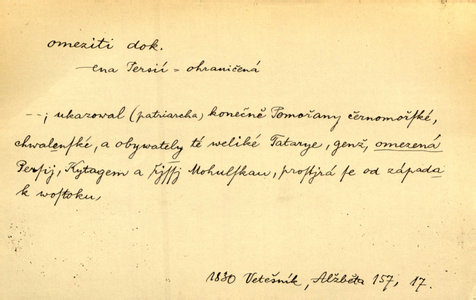 omeziti dok.
-ena Persií = ohraničená
--; ukazoval (patriarcha) konečně Pomořany černomořſké,
chwalenſké, a obywately té weliké Tatarye, genž, omezená
Perſij, Kytagem a Řjſſj Mohulſkau, proſtjrá ſe od západa
k woſtoku,
1830 Vetešník, Alžběta 157, 17.